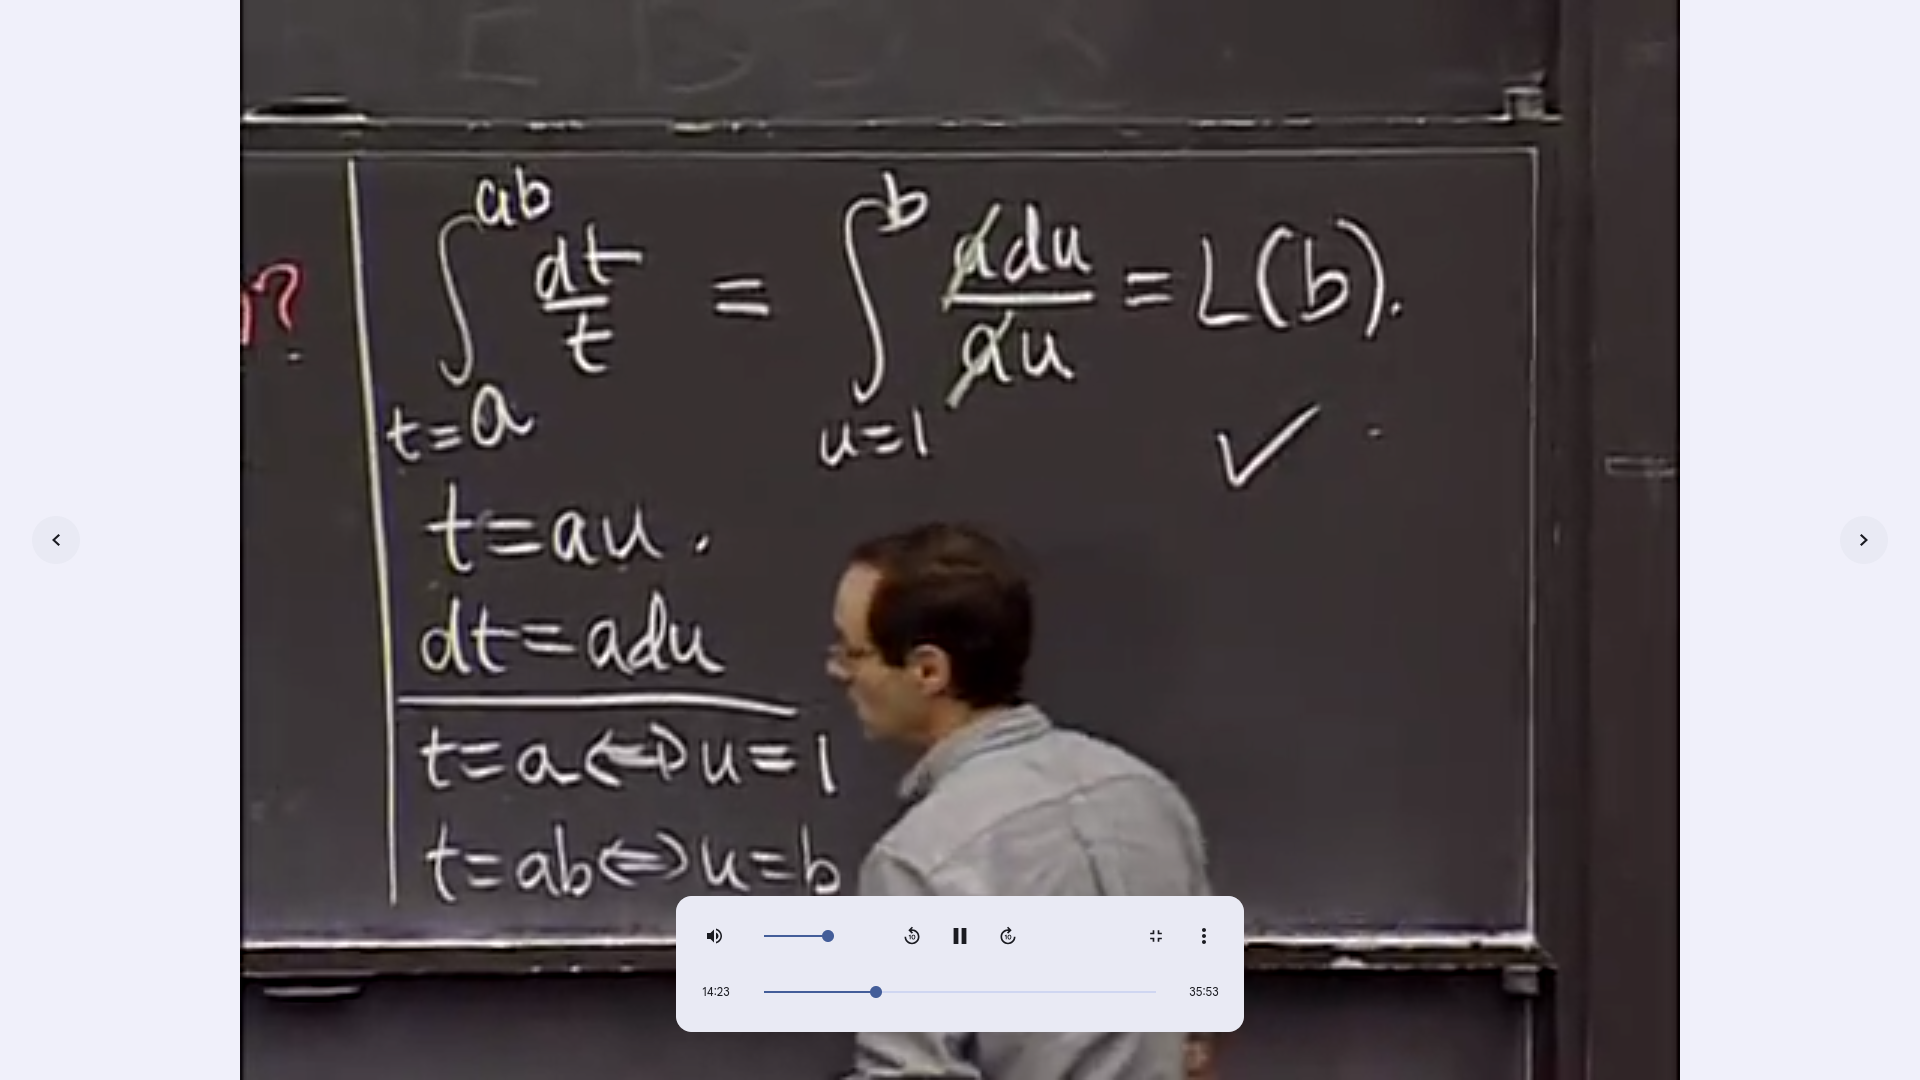 )?
∫_{t=a}^{ab} dt/t = ∫_{u=1}^{b} adu/au = L(b).
✓
t=au.
dt=adu
t=a⇔u=1
t=ab⇔u=b
10 10
14:23 35:53